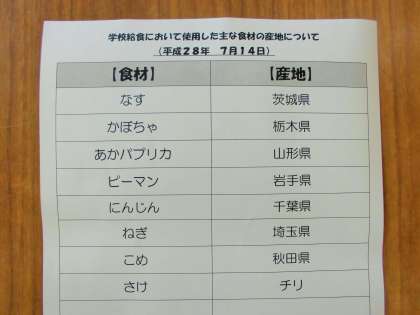 学校給食において使用した主な食材の産地について
(平成28年 7月14日)
【食材】 【産地】
なす 茨城県
かぼちゃ 栃木県
あかパプリカ 山形県
ピーマン 岩手県
にんじん 千葉県
ねぎ 埼玉県
こめ 秋田県
さけ チリ